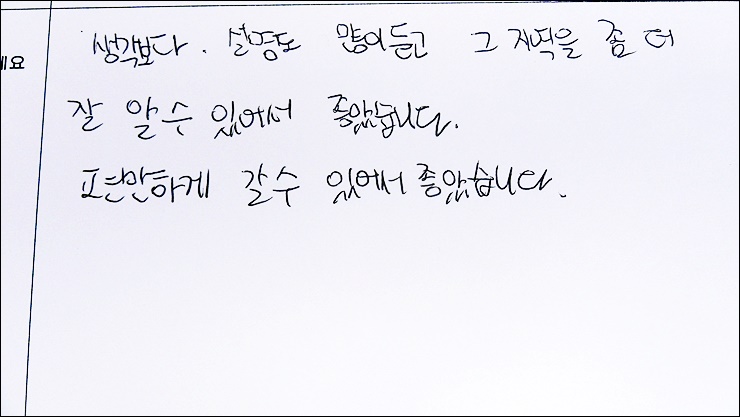 생각보다. 설명도 많이듣고 그 지역을 좀 더
세요
잘 알 수 있어서 좋았습니다.
편안하게 갈수 있어서 좋았습니다.